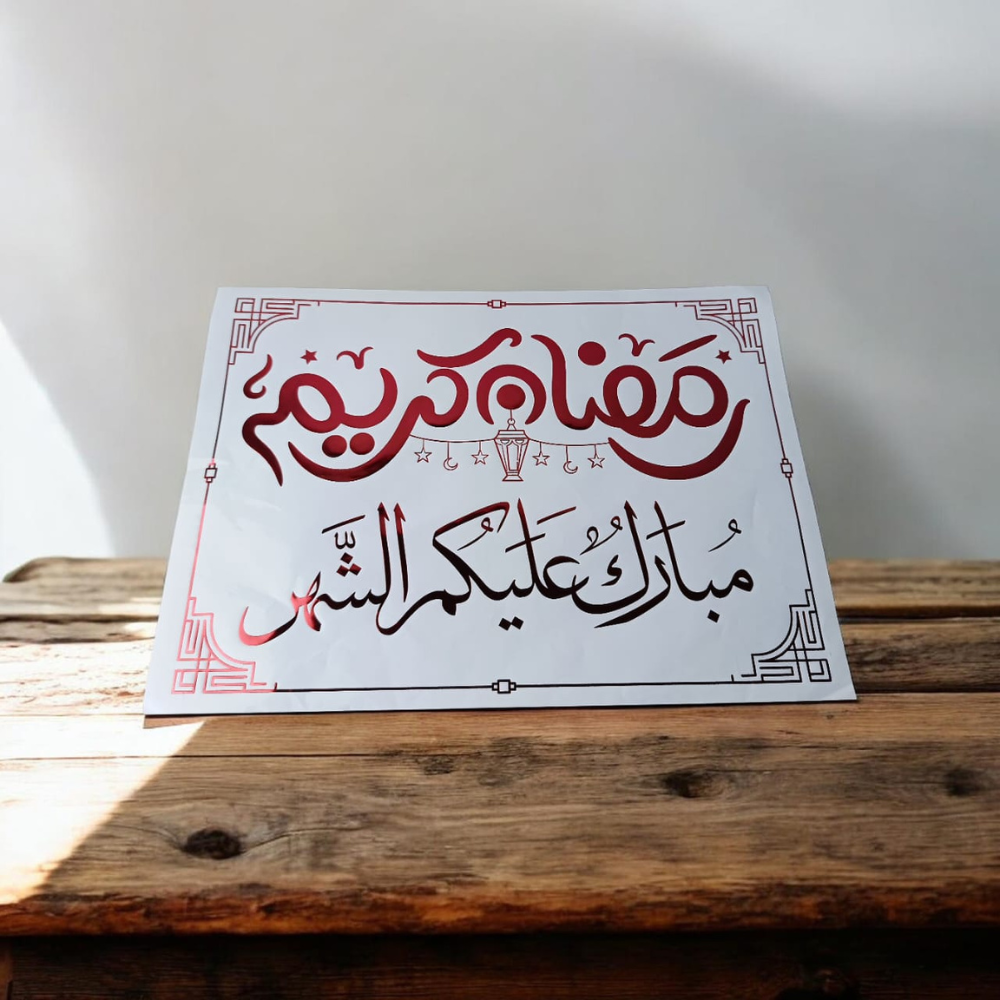 رمضان كريم
مُباركُ عُليَكُم الشَّهر